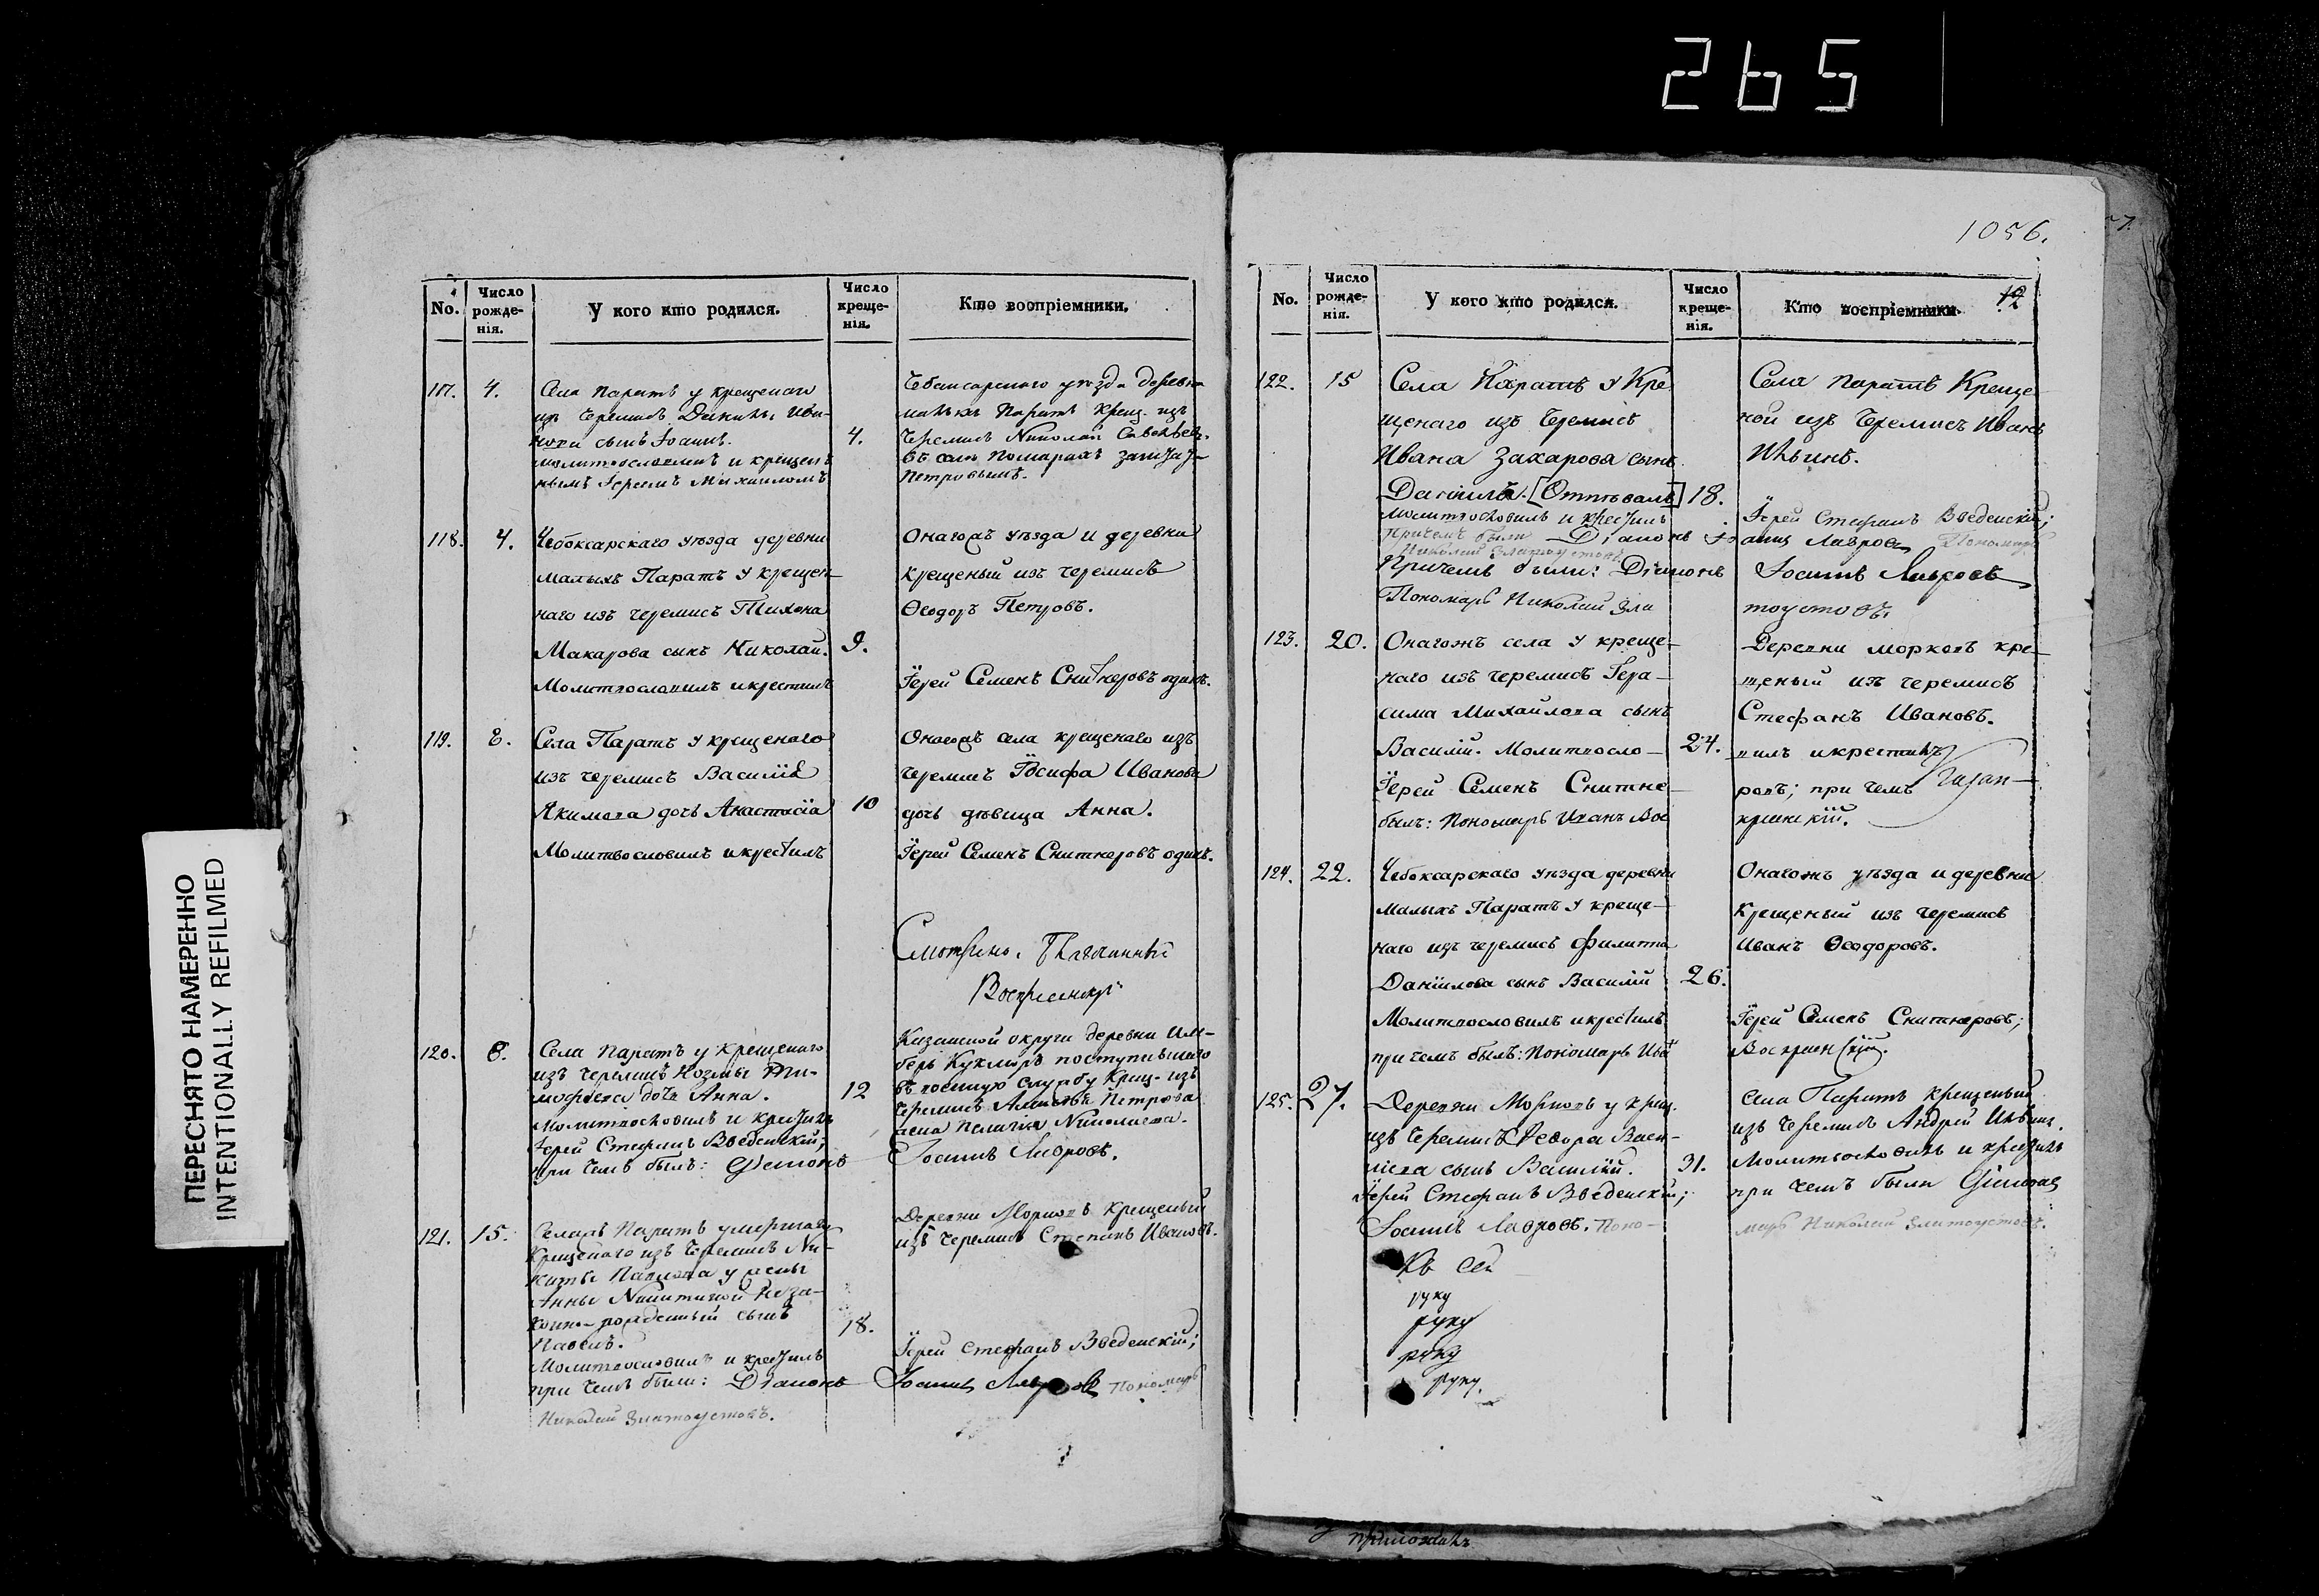 265
1056.
ПЕРЕСНЯТО НАМЕРЕННО
INTENTIONALLY REFILMED
No.
Число рожде-нія.
У кого кто родился.
Число креще-нія.
Кто воспріемники.
117. 4.
Села Паратъ у крещенаго
изъ Черемисъ
сынъ Іоаннъ.
4.
и крещенъ
Михаиломъ
Чебоксарскаго уѣзда деревни
Паратъ Крещ. изъ
Черемисъ Николай
Петровымъ.
118. 4.
Чебоксарскаго уѣзда деревни
малыхъ Паратъ у крещен-
наго изъ черемисъ Тихона
Макарова сынъ Николай. 9.
Молитвословилъ и крестилъ
Онагожъ уѣзда и деревни
крещеный изъ черемисъ
Ѳеодоръ Петровъ.
Іерей Семенъ Снитнеровъ одинъ.
119. 8.
Села Паратъ у крещенаго
изъ черемисъ Василія
Якимова дочь Анастасіа 10
Молитвословилъ и крестилъ
Онагожъ села крещенаго изъ
черемисъ Іосифа Иванова
дочь дѣвица Анна.
Іерей Семенъ Снитнеровъ одинъ.
Смотрѣно. Благочинный
Воскресенскій
120. 8.
Села Паратъ у крещенаго
изъ черемисъ Козмы Ти-
мофеева дочь Анна. 12
Молитвословилъ и крестилъ
Іерей Стефанъ Введенскій;
при чемъ былъ: Діаконъ
Казанской округи деревни
поступившаго
въ военную службу Крещ. изъ
Черемисъ Петрова
жена Николаева.
Іоаннъ Лавровъ.
121. 15.
Паратъ умершаго
Крещенаго изъ Черемисъ Ни-
киты Павлова у жены
Анны Никитиной Неза-
конно-рожденный сынъ
Павелъ. 18.
Молитвословилъ и крестилъ
при чемъ были: Діаконъ
Николай Златоустовъ.
Деревни Морковъ Крещеный
изъ Черемисъ Степанъ Ивановъ.
Іерей Стефанъ Введенскій;
Іоаннъ Лавровъ Пономарь
No.
Число рожде-нія.
У кого кто родился.
Число креще-нія.
Кто воспріемники.
122. 15
Села Паратъ У Кре
щенаго изъ Черемисъ
Ивана Захарова сынъ
Даніилъ. [Отпѣвалъ] 18.
Молитвословилъ и крестилъ
Причемъ были Діаконъ
Николай Златоустовъ
Причемъ были: Діаконъ
Пономарь Николай Зла
Села Паратъ Креще
ной изъ Черемисъ Иванъ
Ильинъ.
Іерей Стефанъ Введенскій;
Лавровъ Пономарь
Іоаннъ Лавровъ
тоустовъ.
123. 20.
Онагожъ села у креще-
наго изъ черемисъ Гера-
сима Михайлова сынъ
Василій. Молитвосло- 24.
Іерей Семенъ Снитне-
былъ: Пономарь Иванъ Вос
Деревни Морковъ кре-
щеный изъ черемисъ
Стефанъ Ивановъ.
вилъ и крестилъ
ровъ; при чемъ
124. 22.
Чебоксарскаго уѣзда деревни
малыхъ Паратъ У креще-
наго изъ черемисъ Филиппа
Даніилова сынъ Василій 26.
Молитвословилъ и крестилъ
при чемъ былъ: Пономарь
Онагожъ уѣзда и деревни
крещеный изъ черемисъ
Иванъ Ѳеодоровъ.
Іерей Семенъ Снитнеровъ;
125. 27.
Деревни Морковъ у крещ.
изъ Черемисъ Ѳедора Васи-
сынъ Василій. 31.
Іерей Стефанъ Введенскій;
Іоаннъ Лавровъ. Поно-
Села Паратъ Крещеный
изъ Черемисъ Андрей Ильинъ.
Молитвословилъ и крестилъ
при чемъ были Діаконъ
марь Николай Златоустовъ.
Къ сей
руку
руку
руку
руку.
приложилъ